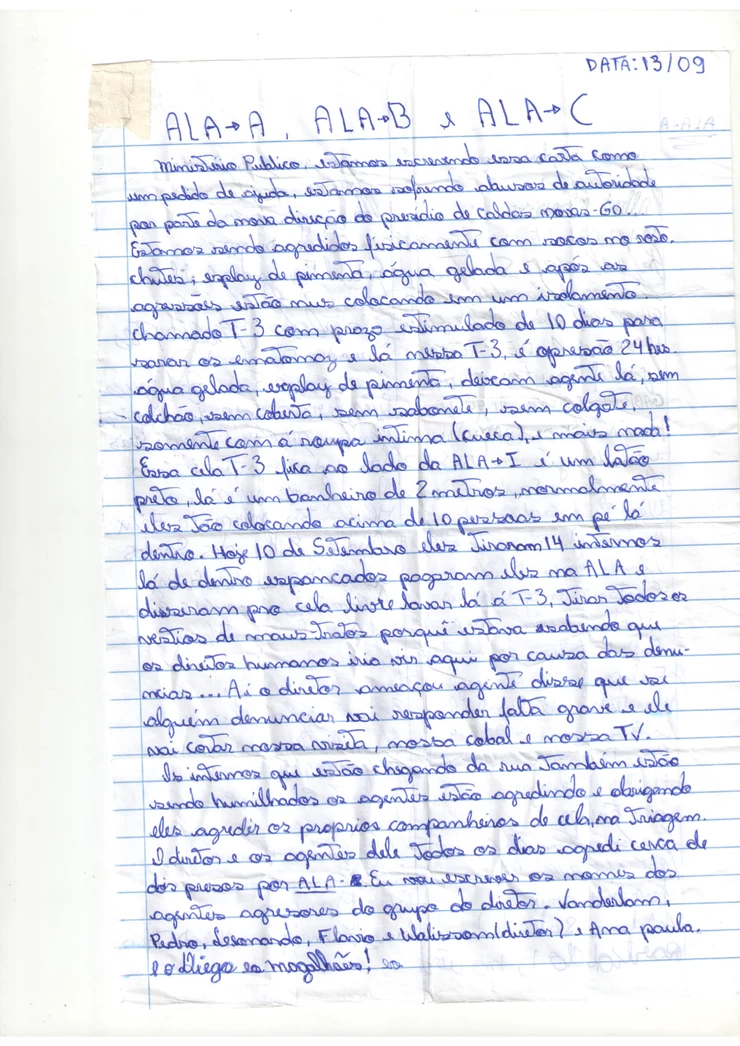 DATA: 13/09
ALA→A, ALA→B e ALA→C
Ministério Publico, estamos escrevendo essa carta como
um pedido de ajuda, estamos sofrendo abusos de autoridade
por parte da nova direção do presídio de caldas novas-GO...
Estamos sendo agredidos fisicamente com socos no rosto.
chutes, explay de pimenta, água gelada e após as
agressões estão nus colocando em um isolamento.
chamado T-3 com prazo estimulado de 10 dias para
sarar os ematomaz e lá nessa T-3, é opresão 24 hrs.
água gelada, explay de pimenta, deixam agente lá, sem
colchão, sem coberta, sem sabonete, sem colgate,
somente com á roupa intima (cueca), e mais nada!
Essa cela T-3 fica ao lado da ALA→I é um latão
preto, lá é um banheiro de 2 metros, normalmente
eles Tão colocando acima de 10 pessoas em pé lá
dentro. Hoje 10 de Setembro eles Tiraram 14 internos
lá de dentro espancados pogaram eles na ALA e
disseram pro cela livre lavar lá á T-3, Tirar Todos os
vestios de maus-Tratos porquê estava sabendo que
os direitos humanos iria vir aqui por causa das denu-
ncias... Ai o diretor ameaçou agente disse que se
alguém denunciar vai responder falta grave e ele
vai cortar nossa visita, nossa cobal e nossa TV.
Os internos que estão chegando da rua Também estão
sendo humilhados os agentes estão agredindo e obrigando
eles agredir os proprios companheiros de cela, na Triagem.
O diretor e os agentes dele Todos os dias agredi cerca de
dois presos por ALA. Eu vou escrever os nomes dos
agentes agresores do grupo do diretor. Vanderlam,
Pedro, Leonando, Flavio e Walisson (diretor) e Ana paula.
e o Diego es magalhães!